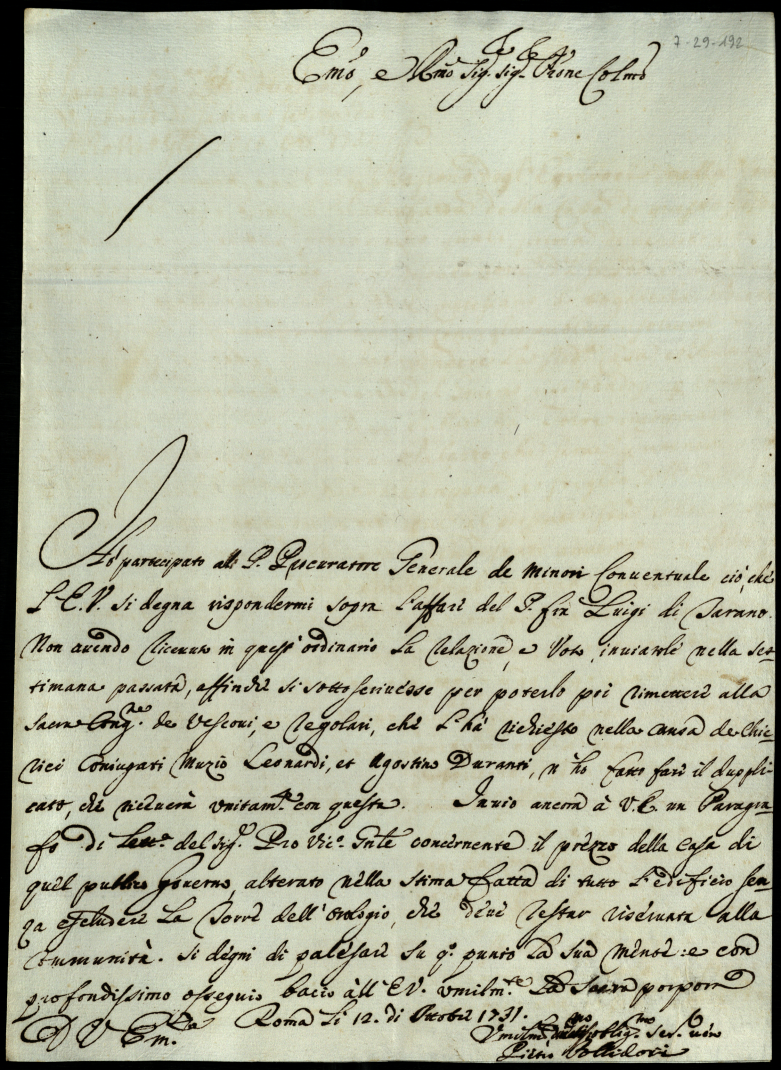 7-29-192
Emo, e Rmo Sig.r Sig.r Prone Colmo
Hò partecipato all P. Procuratore Generale de Minori Conventuale ciò, che
L'E.V. si degna rispondermi sopra l'affare del P. frà Luigi di Sarano.
Non avendo ricevuto in quest'ordinario la relazione, e Voto, inviatole nella set-
timana passata, affinche si sottoscrivesse per poterlo poi rimettere alla
Sacra Cong.ne de Vescovi, e regolari, che l'hà richiesto nella causa de Chie-
rici Coniugati Muzio Leonardi, et Agostino Duranti, n'hò fatto fare il dupli-
cato, che riceverà unitam.te con questa. Invio ancora à V.E. un Paragra-
fo di Lett.a del Sig.r Pro Vic.o Gnle concernente il prezzo della casa di
quel publico Governo, alterato nella stima fatta di tutto l'edificio sen-
za escludere la Torre dell'Orologio, che deve restar riservata alla
Communità. Si degni di palesare su q.o punto la sua mente: e con
profondissimo ossequio bacio all'E.V. umilm.e La Sacra porpora
D V Em.za Roma li 12. di Ottobre 1731.
Umilmo obblig.mo Ser.e
Pietro Pollidori